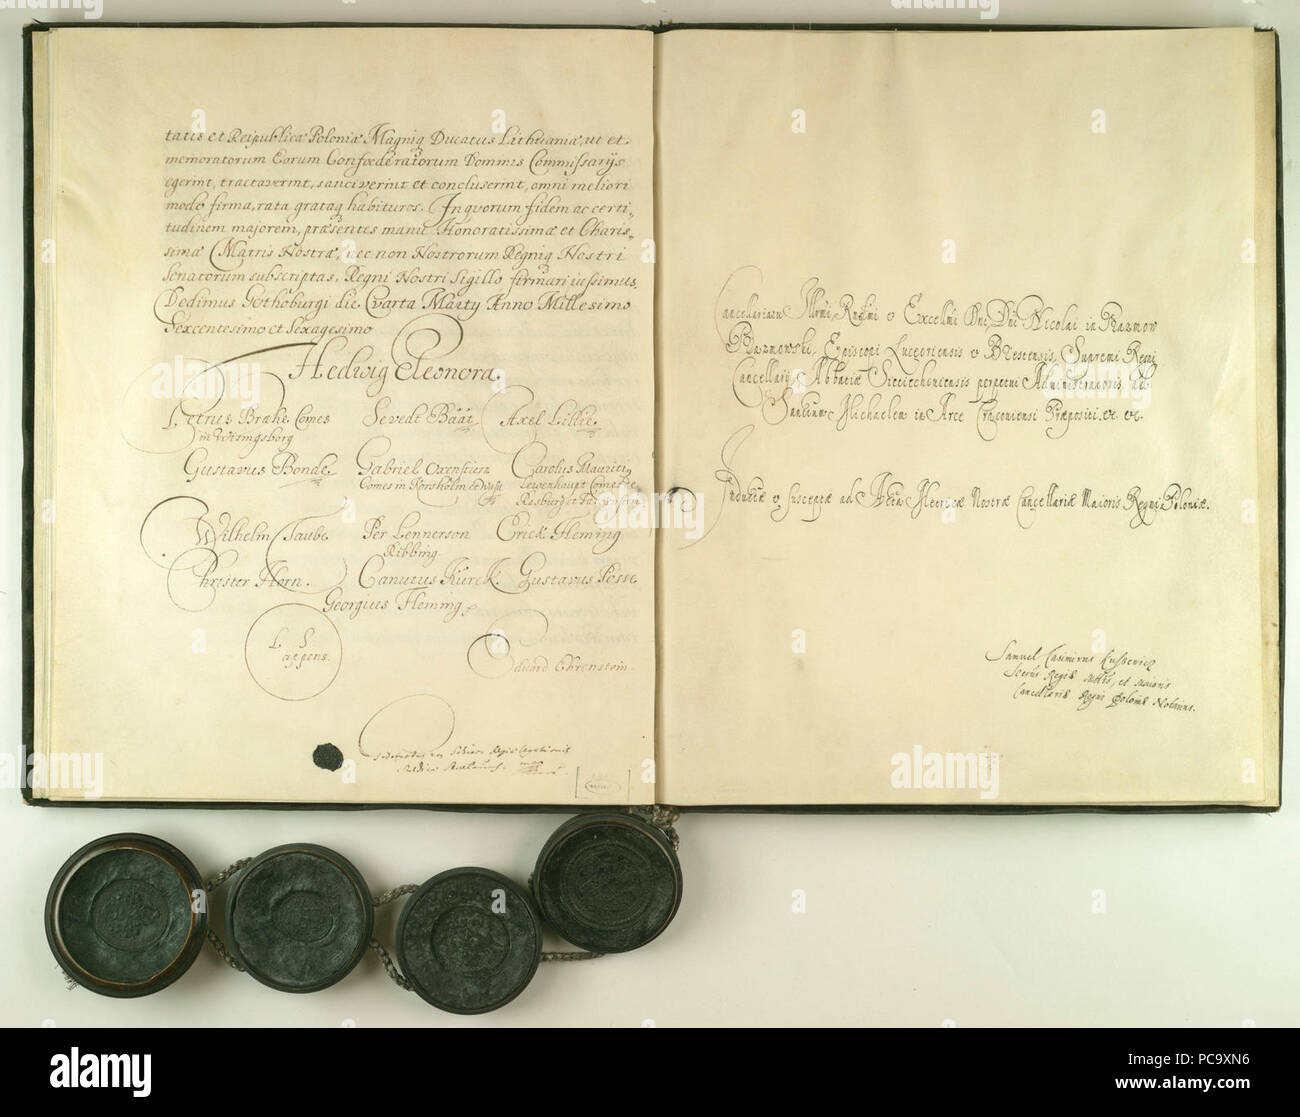 tatis et Reipublicæ Poloniæ Magniq Ducatus Lithuaniæ, ut et
memoratorum Eorum Confœderatorum Dominis Commissarijs
egerint, tractaverint, sanciverint et concluserint, omni meliori
modo firma, rata grataq habituros. In quorum fidem ac certi,
tudinem majorem, præsentes manu Honoratissimæ et Charis,
simæ Matris Nostræ, nec non Nostrorum Regniq Nostri
Senatorum subscriptas, Regni Nostri Sigillo firmari iussimus.
Dedimus Gothoburgi die Qvarta Martij Anno Millesimo
Sexcentesimo et Sexagesimo
Hedwig Eleonora.
Petrus Brahe Comes in Wisingsborg
Sevedt Bäät
Axel Lillie
Gustavus Bonde
Gabriel Oxenstiern Comes in Korsholm et Wasa
Carolus Mauritz Lewenhaupt Comes de Rasburg et
Wilhelm Taube
Per Lennerson Ribbing
Erick Fleming
Christer Horn.
Canutus Kurck.
Gustavus Posse
Georgius Fleming
L S
appens.
Eduard Ehrenstein
Cancellariatu Illrmi, Rndmi & Excellmi Dni, Dni Nicolai in Prazmow
Prazmowski, Episcopi Luceoriensis & Brestensis, Supremi Regni
Cancellarij, Abbatiæ Sieciechoviensis perpetui Administratoris, ad
Sanctum Michaelem in Arce Cracoviensi Præpositi. &c &c
Inductæ & susceptæ ad Acta Metricæ Nostræ Cancellariæ Maioris Regni Poloniæ.
Samuel Casimirus
Regiæ Mttis, et Maioris
Cancellariæ Regni Poloniæ Notarius.
alamy
PC9XN6
Image ID: PC9XN6
www.alamy.com